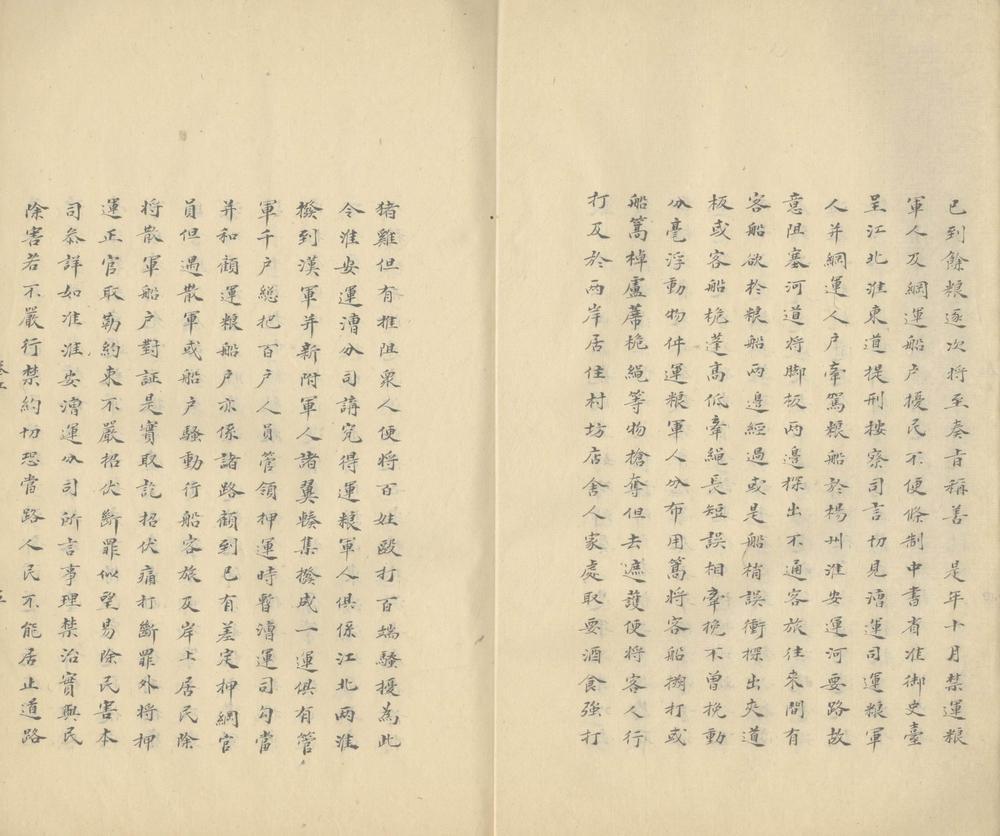 已到餘粮逐次將至奏旨稱善　是年十月禁運粮
軍人及綱運船户擾民不便條制中書省准御史臺
呈江北淮東道提刑按察司言切見漕運司運粮軍
人并綱運人户牽駕粮船於楊州淮安運河要路故
意阻塞河道將脚板两邊探出不通客旅往來間有
客船欲扵粮船两邊經過或是船梢誤衝探出夾道
板或客船桅蓬髙低牽繩長短誤相牽挽不曽挽動
分毫浮動物件運粮軍人分布用篙將客船搠打或
船篙棹蘆蓆桅繩等物搶奪但去遮護便將客人行
打及於两岸居住村坊店舍人家處取要酒食強打
猪雞但有推阻衆人便將百姓毆打百端騷擾為此
令淮安運漕分司講究得運粮軍人俱係江北两淮
撥到漢軍并新附軍人諸翼輳集撥成一運俱有管
軍千户總把百户人員管領押運時暫漕運司勾當
并和顧運粮船户亦係諸路顧到已有差定押綱官
員但遇散軍或船户騷動行船客旅及岸上居民除
將散軍船户對証是實取訖招伏痛打斷罪外將押
運正官取勒約束不嚴招伏斷罪似望易除民害本
司叅詳如准淮安漕運分司所言事理禁治實與民
除害若不嚴行禁約切恐當路人民不能居止道路